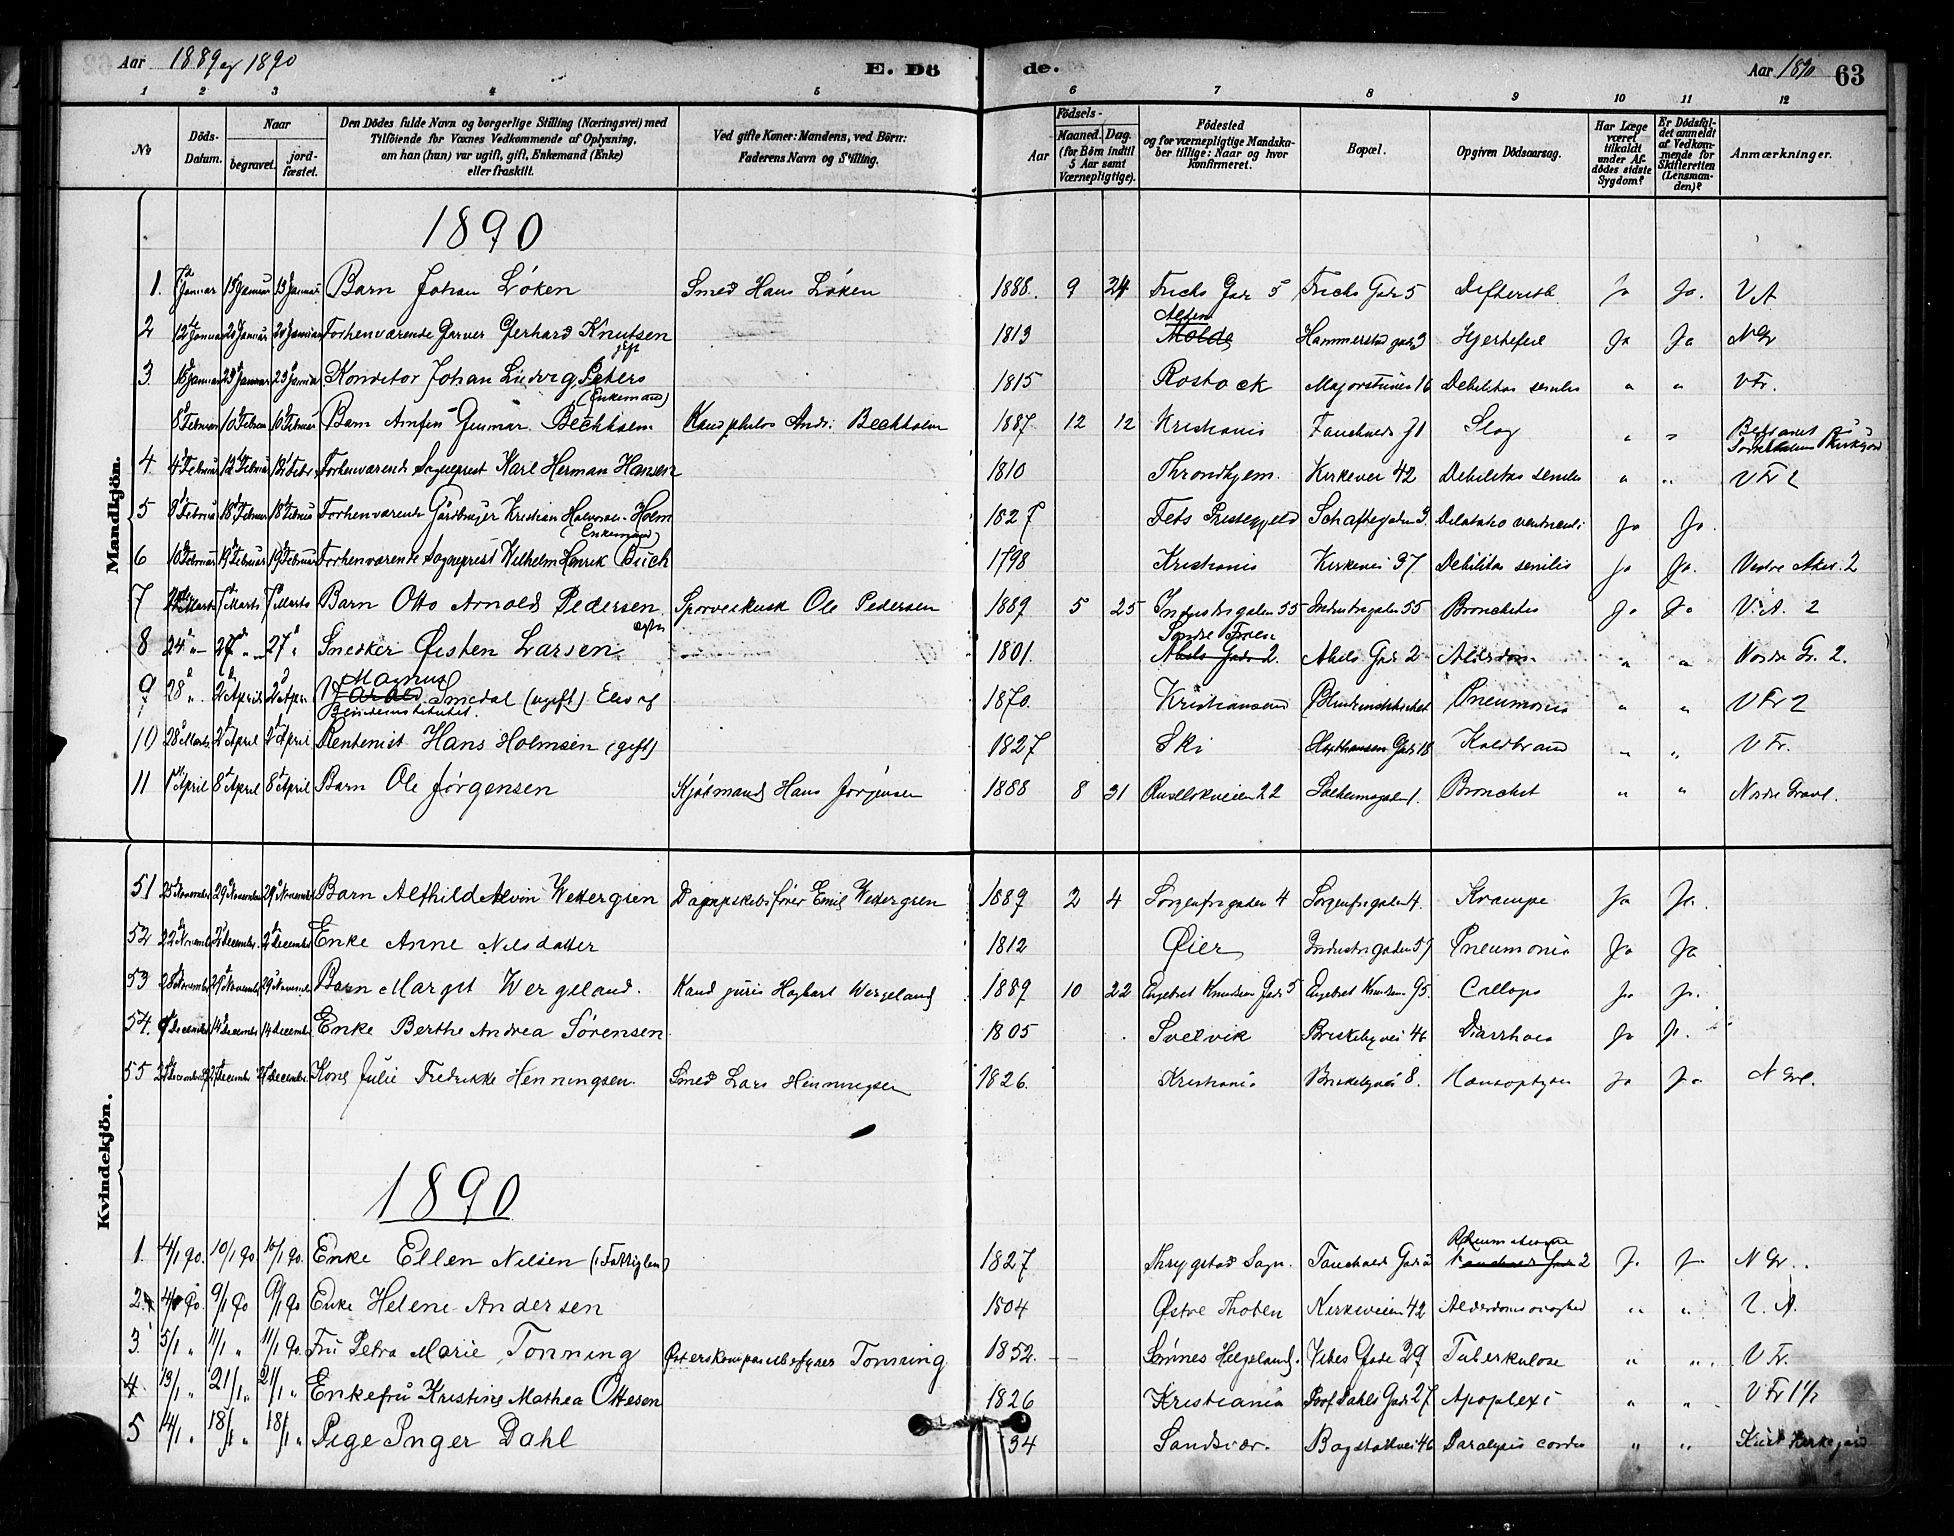 Aar 1889 og 1890 E. Dö de. Aar 1890 63
1 2 3 4 5 6 7 8 9 10 11 12
No
Döds-Datum.
Naar
begravet.
jord-fæstet.
Den Dödes fulde Navn og borgerlige Stilling (Næringsvei) med
Tilföiende for Voxnes Vedkommende af Oplysning,
om han (hun) var ugift, gift, Enkemand (Enke)
eller fraskilt.
Ved gifte Koner: Mandens, ved Börn:
Faderens Navn og Stilling.
Födsels-
Aar
Maaned. Dag.
(for Börn indtil
5 Aar samt
Værnepligtige).
Födested
og for værnepligtige Mandska-
ber tillige: Naar og hvor
konfirmeret.
Bopæl.
Opgiven Dödsaarsag.
Har Læge
været
tilkaldt
under Af-
dödes sidste
Sygdom?
Er Dödsfal-
det anmeldt
af Vedkom-
mende for
Skifteretten
(Lensman-
den)?
Anmærkninger.
Mandkjön.
1890
1. 7de Januar 13 Januar 13 Januar Barn Johan Löken Smed Hans Löken 1888. 9 24 Frichs Gade 5 Frichs Gade 5 Defterith Ja Ja. V A
2 12 Januar 20 Januar 20 Januar Forhenværende Garver Gerhard Knutsen gift 1813 Molde Hammerstad gade 3 Hjertefeil Ja Ja N Gr
3 Januar 23 Januar 23 Januar Konditor Johan Ludvig Peters (Enkemand) 1815 Rostock Majorstuvei 16 Debilitas senilis " " V Fr.
8 Februar 10 Februar 10 Februar Barn Arnfin Gunnar Bechholm Kand philos Andr. Bechholm 1887 12 12 Kristiania Fauchalds g 1 Slag " " Begravet paa Kirkegaard
4 4 Februar 12 Februar Febr Forhenværende Sogneprest Karl Herman Hansen 1810 Throndhjem. Kirkevei 42 Debilitas senilis " " V Fr 2
5 Februar 18 Februar 18 Februar Forhenværende Gaardbruger Kristian Halvorsen Holm (Enkemand) 1827 Fets Prestegjeld Schaftegaden 3. Dilatatio ventriculi Ja Ja.
6 10 Februar 19 Februar 19 Februar Forhenværende Sogneprest Wilhelm Henrik Buch 1798 Kristiania Kirkevei 37. Debilitas senilis Ja Ja. Vestre Aker. 2
7 Marts 7 Marts 7 Marts Barn Otto Arnold Pedersen Sporveiskusk Ole Pedersen 1889 5 25 Industrigaden 55 Industrigaden 55 Bronchitis Ja Ja V. A. 2
8 24 " 27 " 27 " Snedker Øisten Larsen. 1801. Søndre Froen Abels Gade 2. Abels Gade 2 Alderdom " " Nordre Gr. 2.
9 28 " 2 April 2 April Magnus Smedal (ugift) Elev af Blindeinstitutet. 1870. Kristiansund Blindeinstitutet Pneumonia " " V Fr 2
10 28 Marts 2 April 2 April Rentenist Hans Holmsen (gift) 1827 Ski Holthausen Gade 18 Koldbrand " " V Fr.
11 1 April 8 April 8 April Barn Ole Jørgensen Kjøbmand Hans Jørgensen 1888 8 31 Ruselökveien 22 1. Bronchit " " Nordre Gravl.
Kvindekjön.
51 25 November 29 November 29 November Barn Alfhild Alvin Wettergren Dampskibsfører Emil Wettergren 1889 2 4 Sorgenfrigaden 4 Sorgenfrigaden 4. Krampe Ja Ja.
52 22 November 2 December 2 December Enke Anne Nilsdatter 1812 Øier Industrigaden 57 Pneumonia Ja Ja
53 28 November 29 November 29 November Barn Margit Wergeland. Kand juris Hagbart Wergeland 1889 10 22 Engebret Knudsens Gade 5 Engebret Knudsens G 5. Collaps Ja Ja.
54. December 14 December 14 December Enke Berthe Andrea Sörensen 1805 Svelvik Briskebyvei 46 Diarrhoea Ja Ja.
55 December 27 December 27 December. Kone Julie Fredrikke Henningsen. Smed Lars Henningsen 1826. Kristiania Briskebyvei 8. Hæmoptysis Ja Ja N Grl.
1890
1. 4/1 90. 10/1 90 10/1 90. Enke Ellen Nilsen (Fattiglem) 1827 Thrygstad Sogn. Fauchalds Gade 2 Rheumatisme Fauchalds Gade 2 Ja Ja N Gr.
2. 4/1 90. 9/1 90 9/1 90 Enke Helene Andersen 1804 Østre Thoten Kirkeveien 42 Alderdomssvaghed " " V. A.
3. 5/1 " 11/1 " 11/1 90. Fru Petra Marie Tonning Tonning 1852. Sømnes Helgeland. Vibes Gade 29 Tuberkulose " " V Fr.
4 13/1 " 21/1 " 21/1 " Enkefru Kristine Mathea Ottesen 1826 Kristiania Prof Dahls Gade 27 Apoplexi " " V Fr 1 1/2
5 14/1 " 18/1 " 18/1 " Pige Inger Dahl 34 Sandsvær. Bogstadvei 46 Paralysis cordis " " Krist Kirkegaard